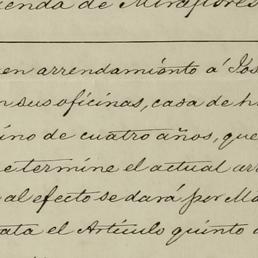 enda de Miraflores
en arrendamiento á Jos
n sus oficinas, casa de h
ino de cuatro años, que
etermine el actual arr
al efecto se dará por Ma
ata el Artículo quinto d